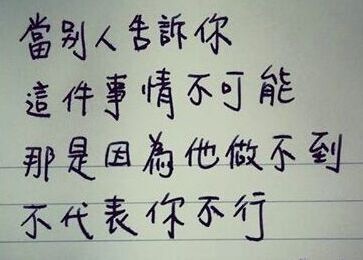 當別人告訴你
這件事情不可能
那是因為他做不到
不代表你不行